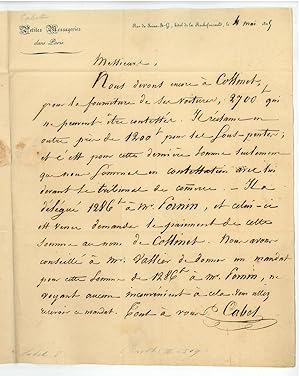 Petites Messageries
dans Paris
Rue de Seine-S-G, hôtel de la Rochefoucauld, le 4 mai
Messieurs,
Nous devons encore à Cottinet,
pour la fourniture de ses voitures, 2700 f qui
ne peuvent être contestés. Il réclame en
outre près de 1200 f pour ses sous-pentes;
et c'est pour cette dernière somme seulement
que nous sommes en contestation avec lui
devant le tribunal de commerce. — Il a
délégué 1286 f à Mr. Pornin, et celui-ci
est venu demander le paiement de cette
somme au nom de Cottinet. Nous avons
conseillé à Mr. Vallier de donner un mandat
pour cette somme de 1286 f à Mr. Pornin, ne
voyant aucun inconvénient à cela. Vous allez
recevoir ce mandat. Tout à vous Cabet